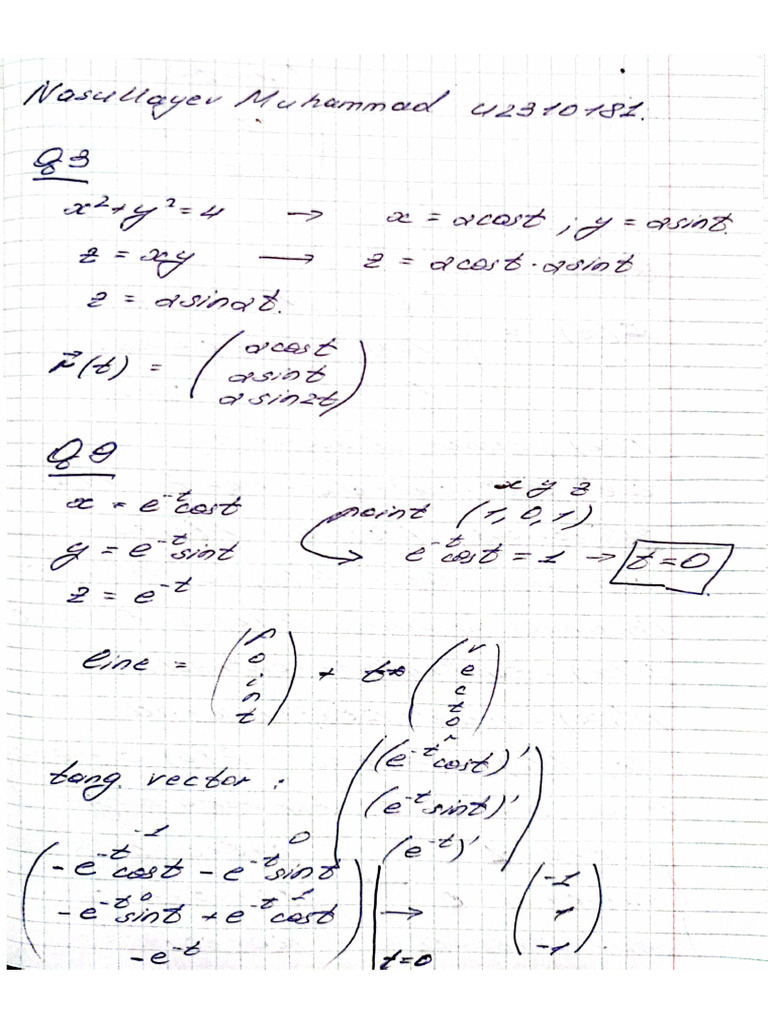 Nasullayev Muhammad U2310181.
Q3
x²+y²=4 → x = 2cost ; y = 2sint.
z = xy → z = 2cost · 2sint
z = 2sin2t.
r⃗(t) = (2cost
2sint
2sin2t)
Q9
x y z
x = e^-t cost point (1, 0, 1)
y = e^-t sint e^-t cost = 1 → t=0
z = e^-t
line = (p o i n t) + t· (v e c t o r)
tang. vector : ((e^-t cost)'
(e^-t sint)'
(e^-t)')
-1 0
(-e^-t cost - e^-t sint
0 1
-e^-t sint + e^-t cost
-e^-t) | t=0 → (-1
1
-1)